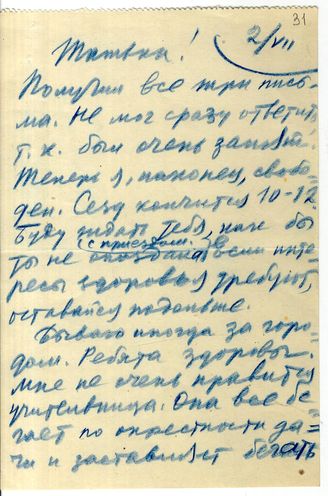 31
2/VII
Татька!
Получил все три пись-
ма. Не мог сразу ответить,
т. к. был очень занят.
Теперь я, наконец, свобо-
ден. Сезд кончится 10-12.
Буду ждать тебя, как бы
(с приездом.
ты не опоздала). Если инте-
ресы здоровья требуют,
оставайся подольше.
Бываю иногда за горо-
дом. Ребята здоровы.
Мне не очень нравится
учительница. Она все бе-
гает по окрестности да-
чи и заставляет бегать